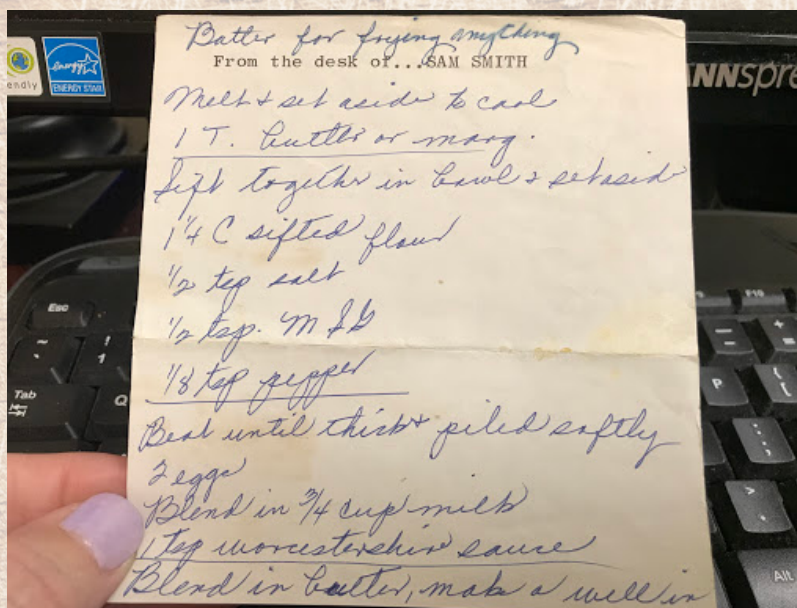 endly
energy
ENERGY STAR
NNspre
Batter for frying anything
From the desk of...SAM SMITH
Melt & set aside to cool
1 T. butter or marg.
Sift together in bowl & set asid
1 1/4 C sifted flour
1/2 tsp salt
1/2 tsp. MSG
1/8 tsp pepper
Beat until thick & piled softly
2 eggs
Blend in 3/4 cup milk
1 tsp worcestershire sauce
Blend in butter, make a well in
Esc
F10
~
!
1
-
+
=
Tab
Q
P
{
[
:
;
>
.
Alt